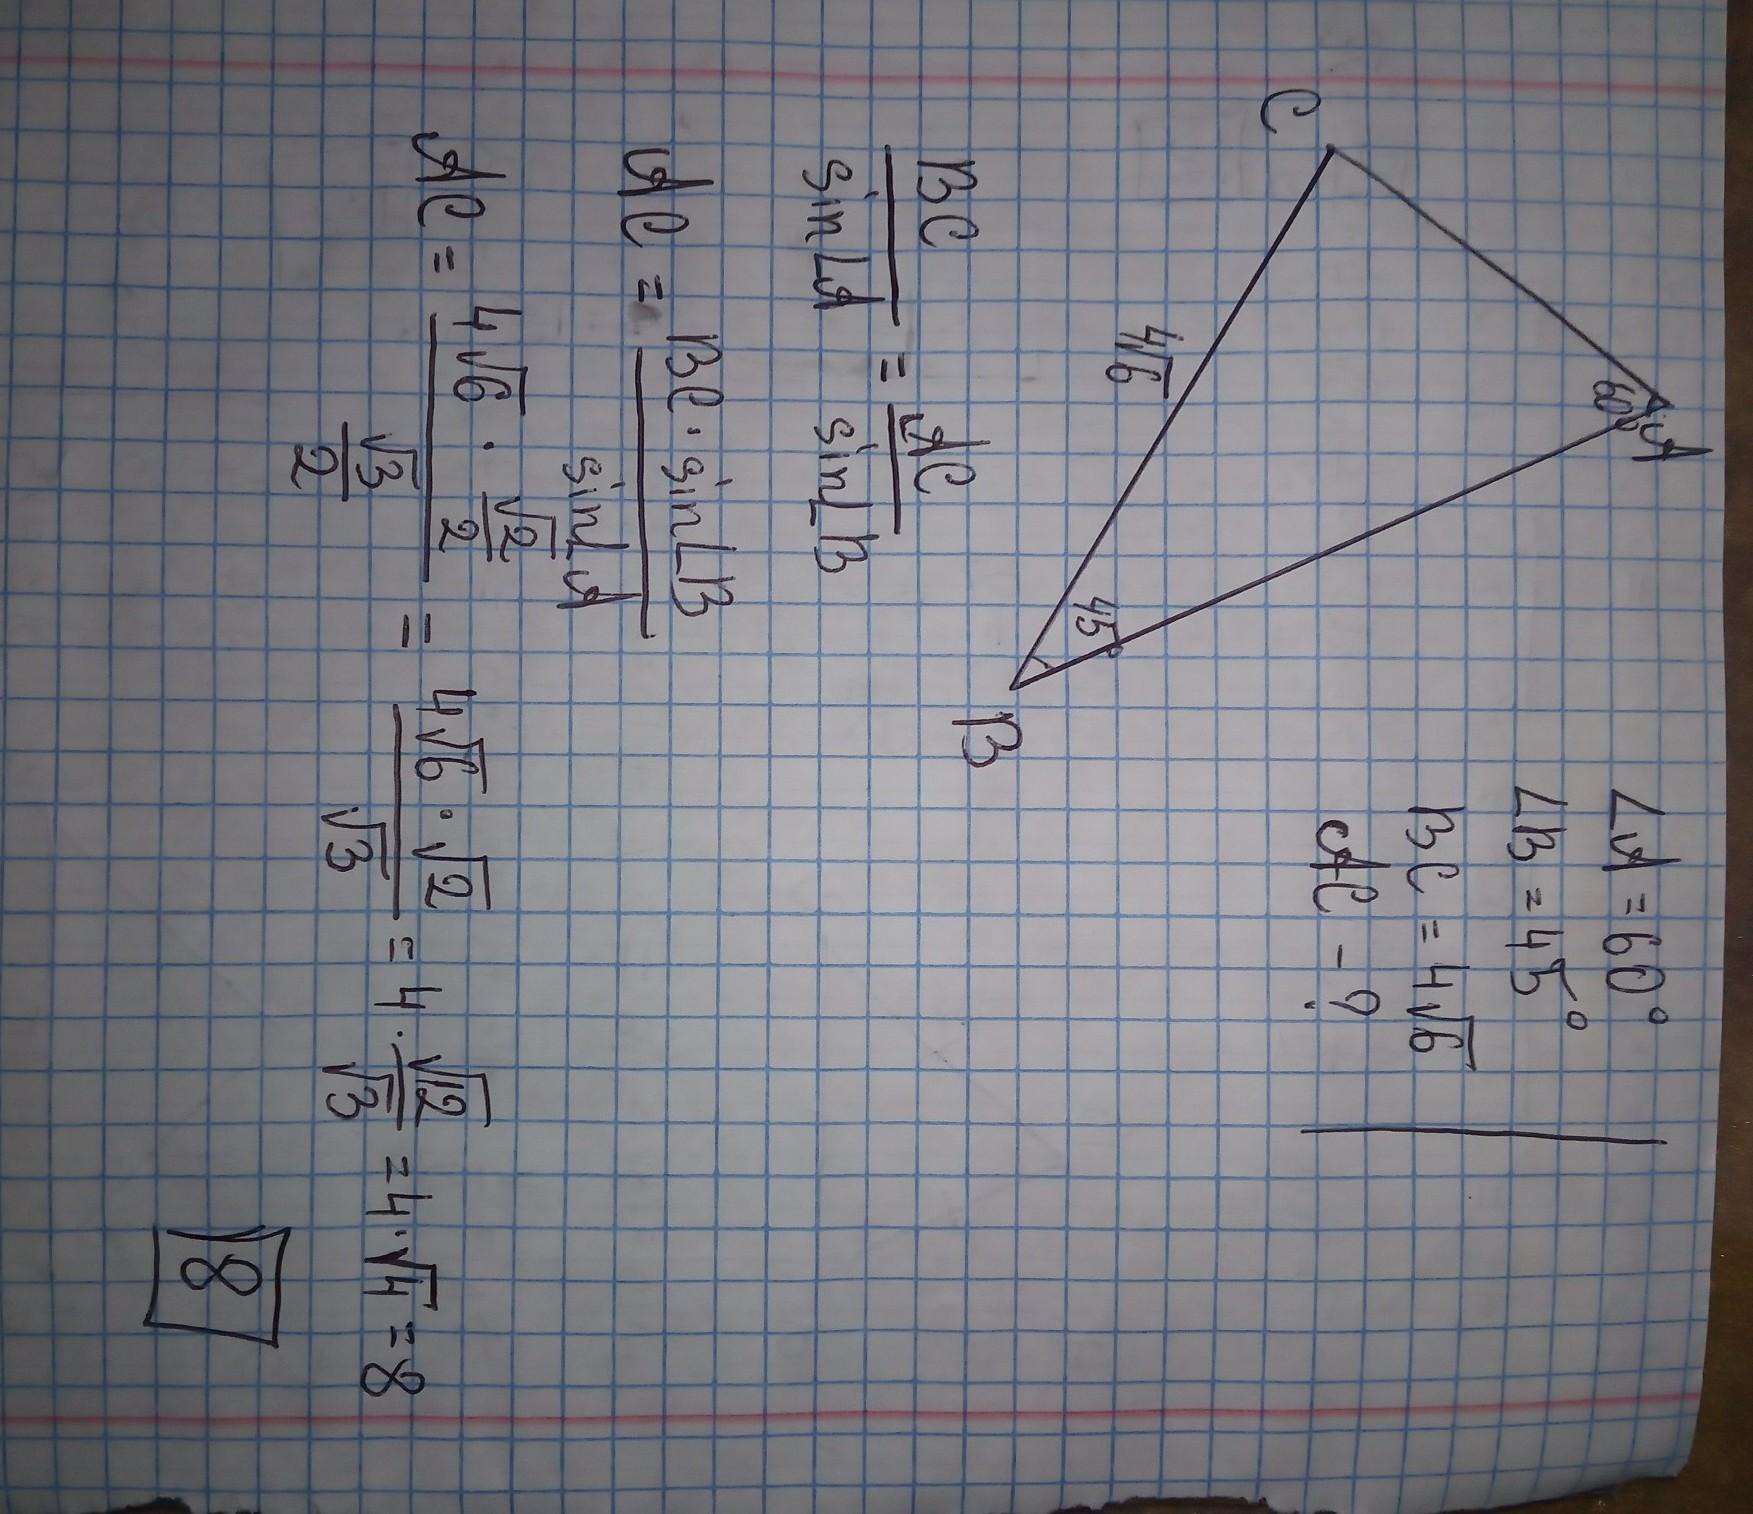 A
60°
C
4√6
45°
B
∠A = 60°
∠B = 45°
BC = 4√6
AC - ?
BC / sin∠A = AC / sin∠B
AC = BC · sin∠B / sin∠A
AC = (4√6 · √2/2) / (√3/2) = 4√6 · √2 / √3 = 4 · √12/√3 = 4 · √4 = 8
8